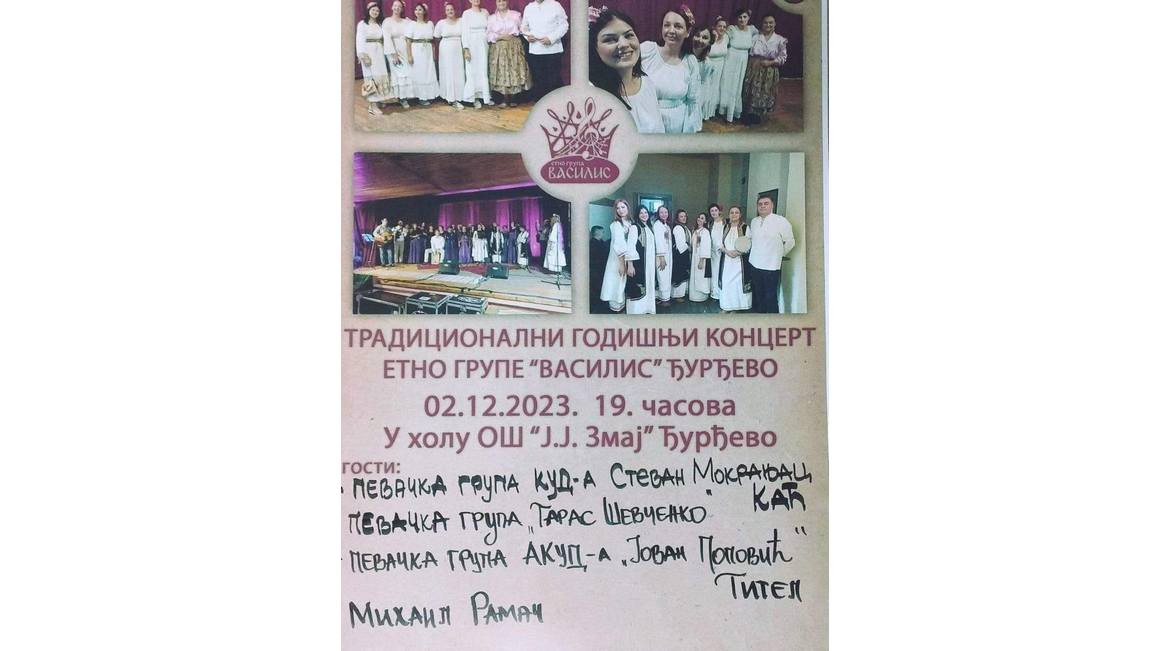 ЕТНО ГРУПА
ВАСИЛИС
ТРАДИЦИОНАЛНИ ГОДИШЊИ КОНЦЕРТ
ЕТНО ГРУПЕ "ВАСИЛИС" ЂУРЂЕВО
02.12.2023. 19. часова
У холу ОШ "Ј.Ј. Змај" Ђурђево
гости:
- ПЕВАЧКА ГРУПА КУД-А СТЕВАН МОКРАЊАЦ
КАЋ
ПЕВАЧКА ГРУПА „ТАРАС ШЕВЧЕНКО"
- ПЕВАЧКА ГРУПА АКУД-А „ЈОВАН ПОПОВИЋ"
ТИТЕЛ
МИХАИЛ РАМАЧ